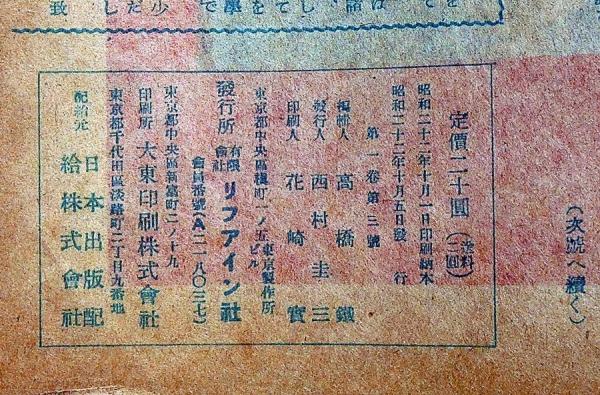 定價二十圓（送料二圓）
昭和二十二年十月一日印刷納本
昭和二十二年十月五日發行
第一卷第三號
編輯人 高橋鐵
發行人 西村圭三
印刷人 花崎實
東京都中央區横町一ノ五東京製作所ビル
發行所 有限會社 リフアイン社
會員番號（A二一八〇三七）
東京都中央區新富町二ノ十九
印刷所 大東印刷株式會社
東京都千代田區淡路町二丁目九番地
配給元 日本出版配給株式會社
（次號へ續く）